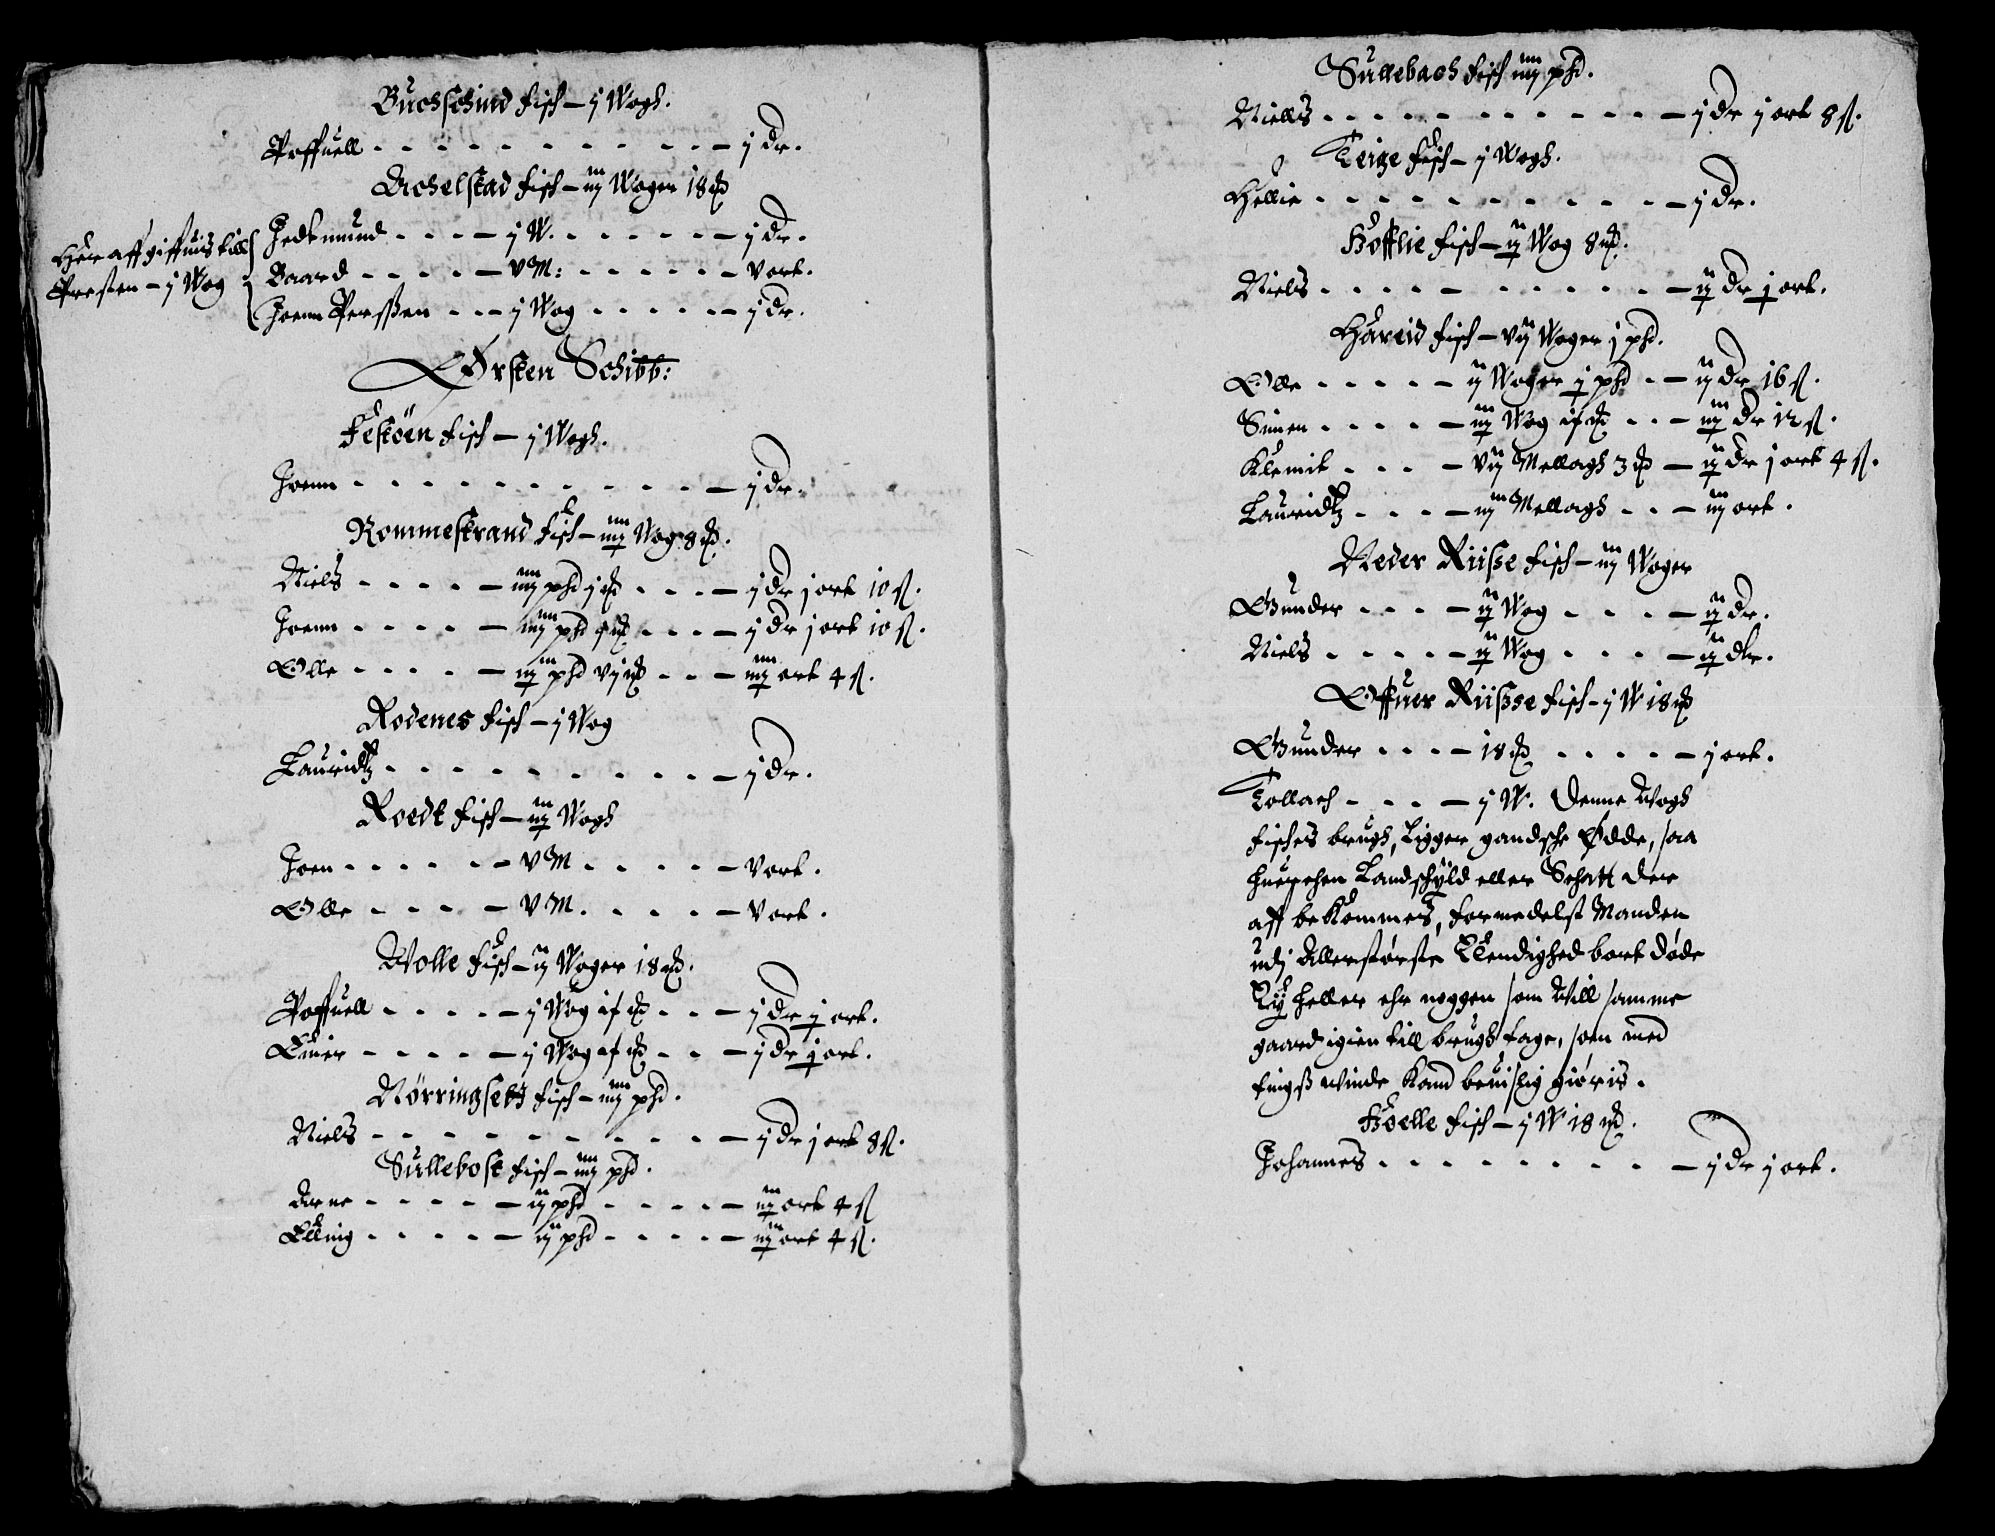 Buchschind fisch – j Wogh.
Poffuell – j dr.
Achelstad fisch – iij Woger 18 ℔
Her aff giffuis till
Presten – j Wog
Jedtmund – j W. – j dr.
Baard – v M: – v ort.
Joenn Perßen – j Wog – j dr.
Ørsten Schibb:
Feskøen fisch – j Wogh.
Joenn – j dr.
Rommestrand fisch – iiij Wog 8 ℔.
Niels – iiij phd j ℔ – j dr j ort 10 ß.
Joenn – iiij phd 9 ℔ – j dr j ort 10 ß.
Olle – iij phd vj ℔ – iiij ort 4 ß.
Rodenes fisch – j Wog
Lauridtz – j dr.
Roedt fisch – iij Wogh
Joen – v M – v ort.
Olle – v M. – v ort.
Wolle fisch – ij Woger 18 ℔.
Poffuell – j Wog if ℔ – j dr j ort.
Einer – j Wog if ℔ – j dr j ort.
Nørringsett fisch – iiij phd.
Niels – j dr j ort 8 ß.
Sullebost fisch – iiij phd.
Arne – ij phd – iij ort 4 ß
Elling – ij phd – iij ort 4 ß.
Sullebach fisch iiij phd.
Niells – j dr j ort 8 ß.
Teige fisch – j Wogh.
Hellie – j dr.
Hofflie fisch – ij Wog 8 ℔.
Niels – ij dr j ort.
Hareid fisch – vij Woger j phd.
Olle – ij Woger j phd – ij dr 16 ß.
Simen – iij Wog if ℔ – iij dr 12 ß.
Klemit – vij Mellagh 3 ℔ – ij dr j ort 4 ß.
Lauridtz – iij Mellagh – iij ort.
Neder Riiße fisch – iij Woger
Gunder – ij Wog – ij dr.
Niels – ij Wog – ij dlr.
Offuer Riißse fisch – j W 18 ℔
Gunder – 18 ℔ – j ort.
Tollach – j W. denne Wogh
fisches brugh, Ligger gandsche Ødde, saa
huerchen Landschÿld eller Schatt der
aff bekommes, formedelst Manden
udj Allerstørste Elendighed bort døde
Eÿ heller ehr noggen som Will samme
gaard igien till brugh tage, som med
tingß winde Kand beuislig giøris.
Hoelle fisch – j W 18 ℔.
Johannes – j dr j ort.